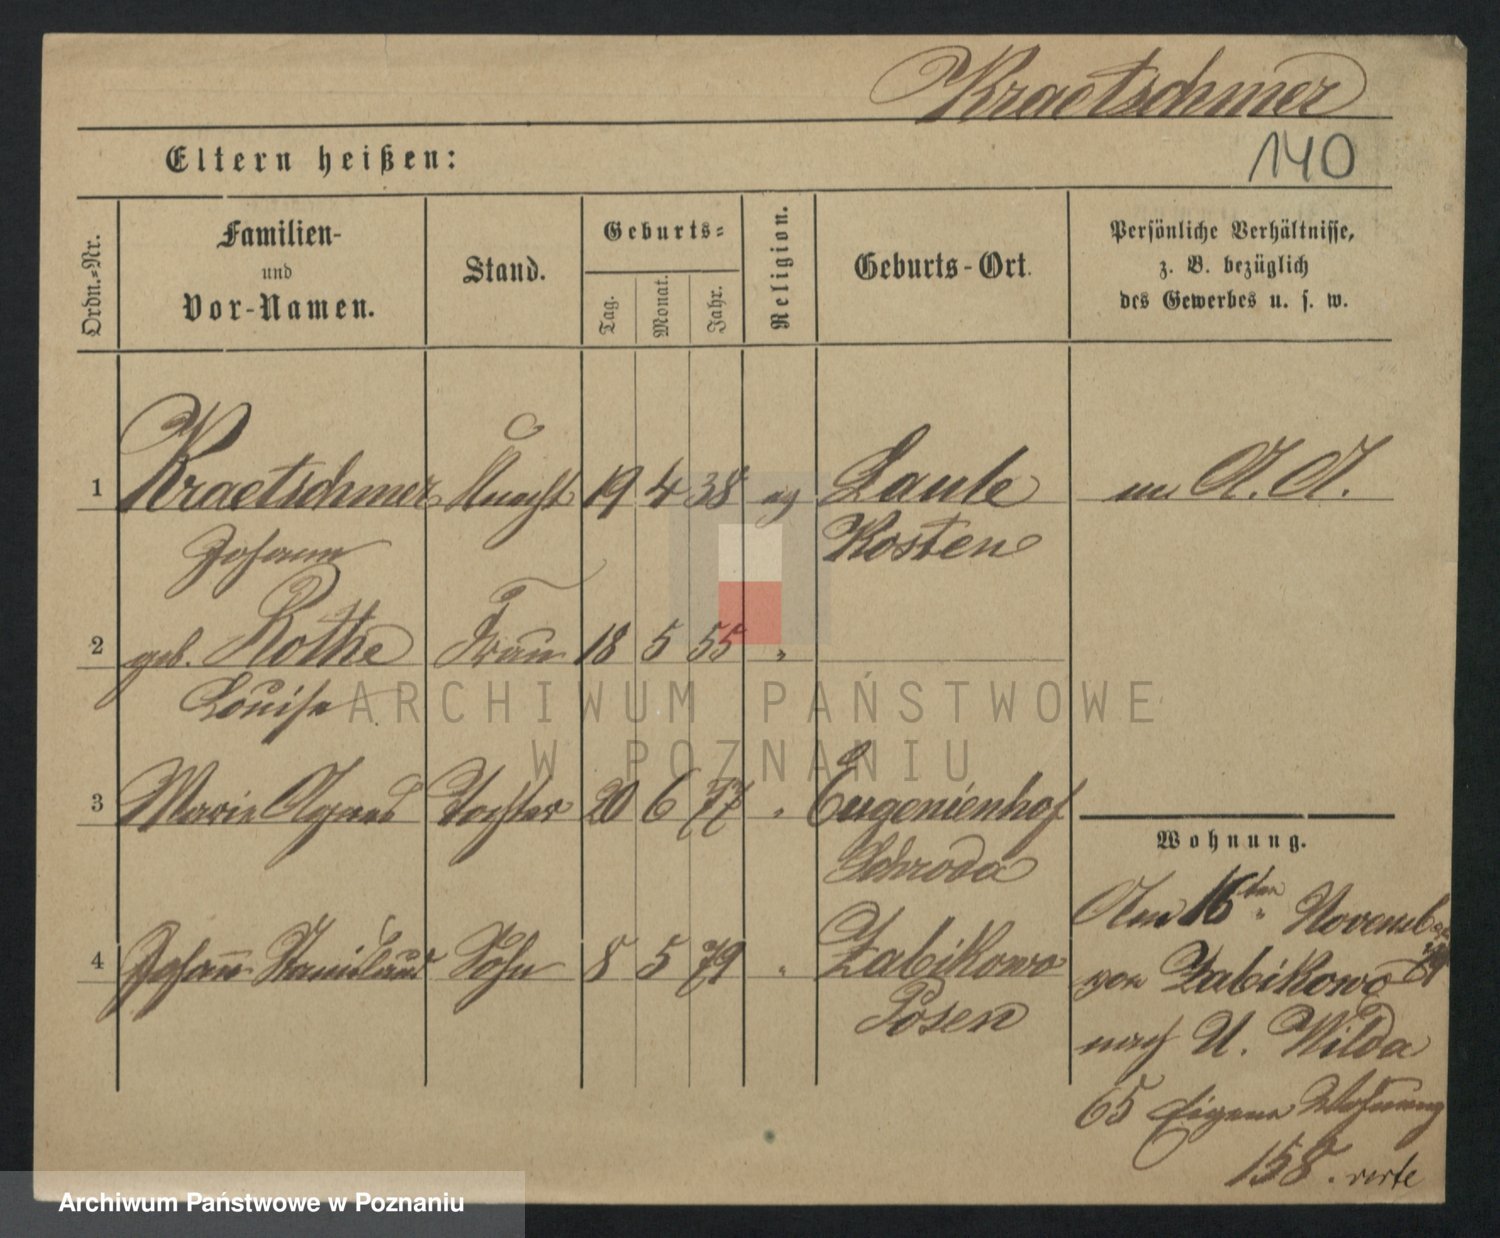 Kraetschmer
140
Eltern heißen:
Ordn.-Nr.
Familien-
und
Vor-Namen.
Stand.
Geburts-
Tag.
Monat.
Jahr.
Religion.
Geburts-Ort.
Persönliche Verhältnisse,
z. B. bezüglich
des Gewerbes u. s. w.
1 Kraetschmer Knecht 19 4 38 eg Laube
Johann Kosten
2 geb. Rothe Frau 18 5 55 "
Louise
3 Marie Agnes Tochter 20 6 77 " Eugenienhof
Schroda
4 Johann Stanislaus Sohn 8 5 79 " Zabikowo
Posen
Wohnung.
Am 16ten November
von Zabikowo
nach U. Wilda
65 Eigene Wohnung
158. verte
ARCHIWUM PAŃSTWOWE
W POZNANIU
Archiwum Państwowe w Poznaniu